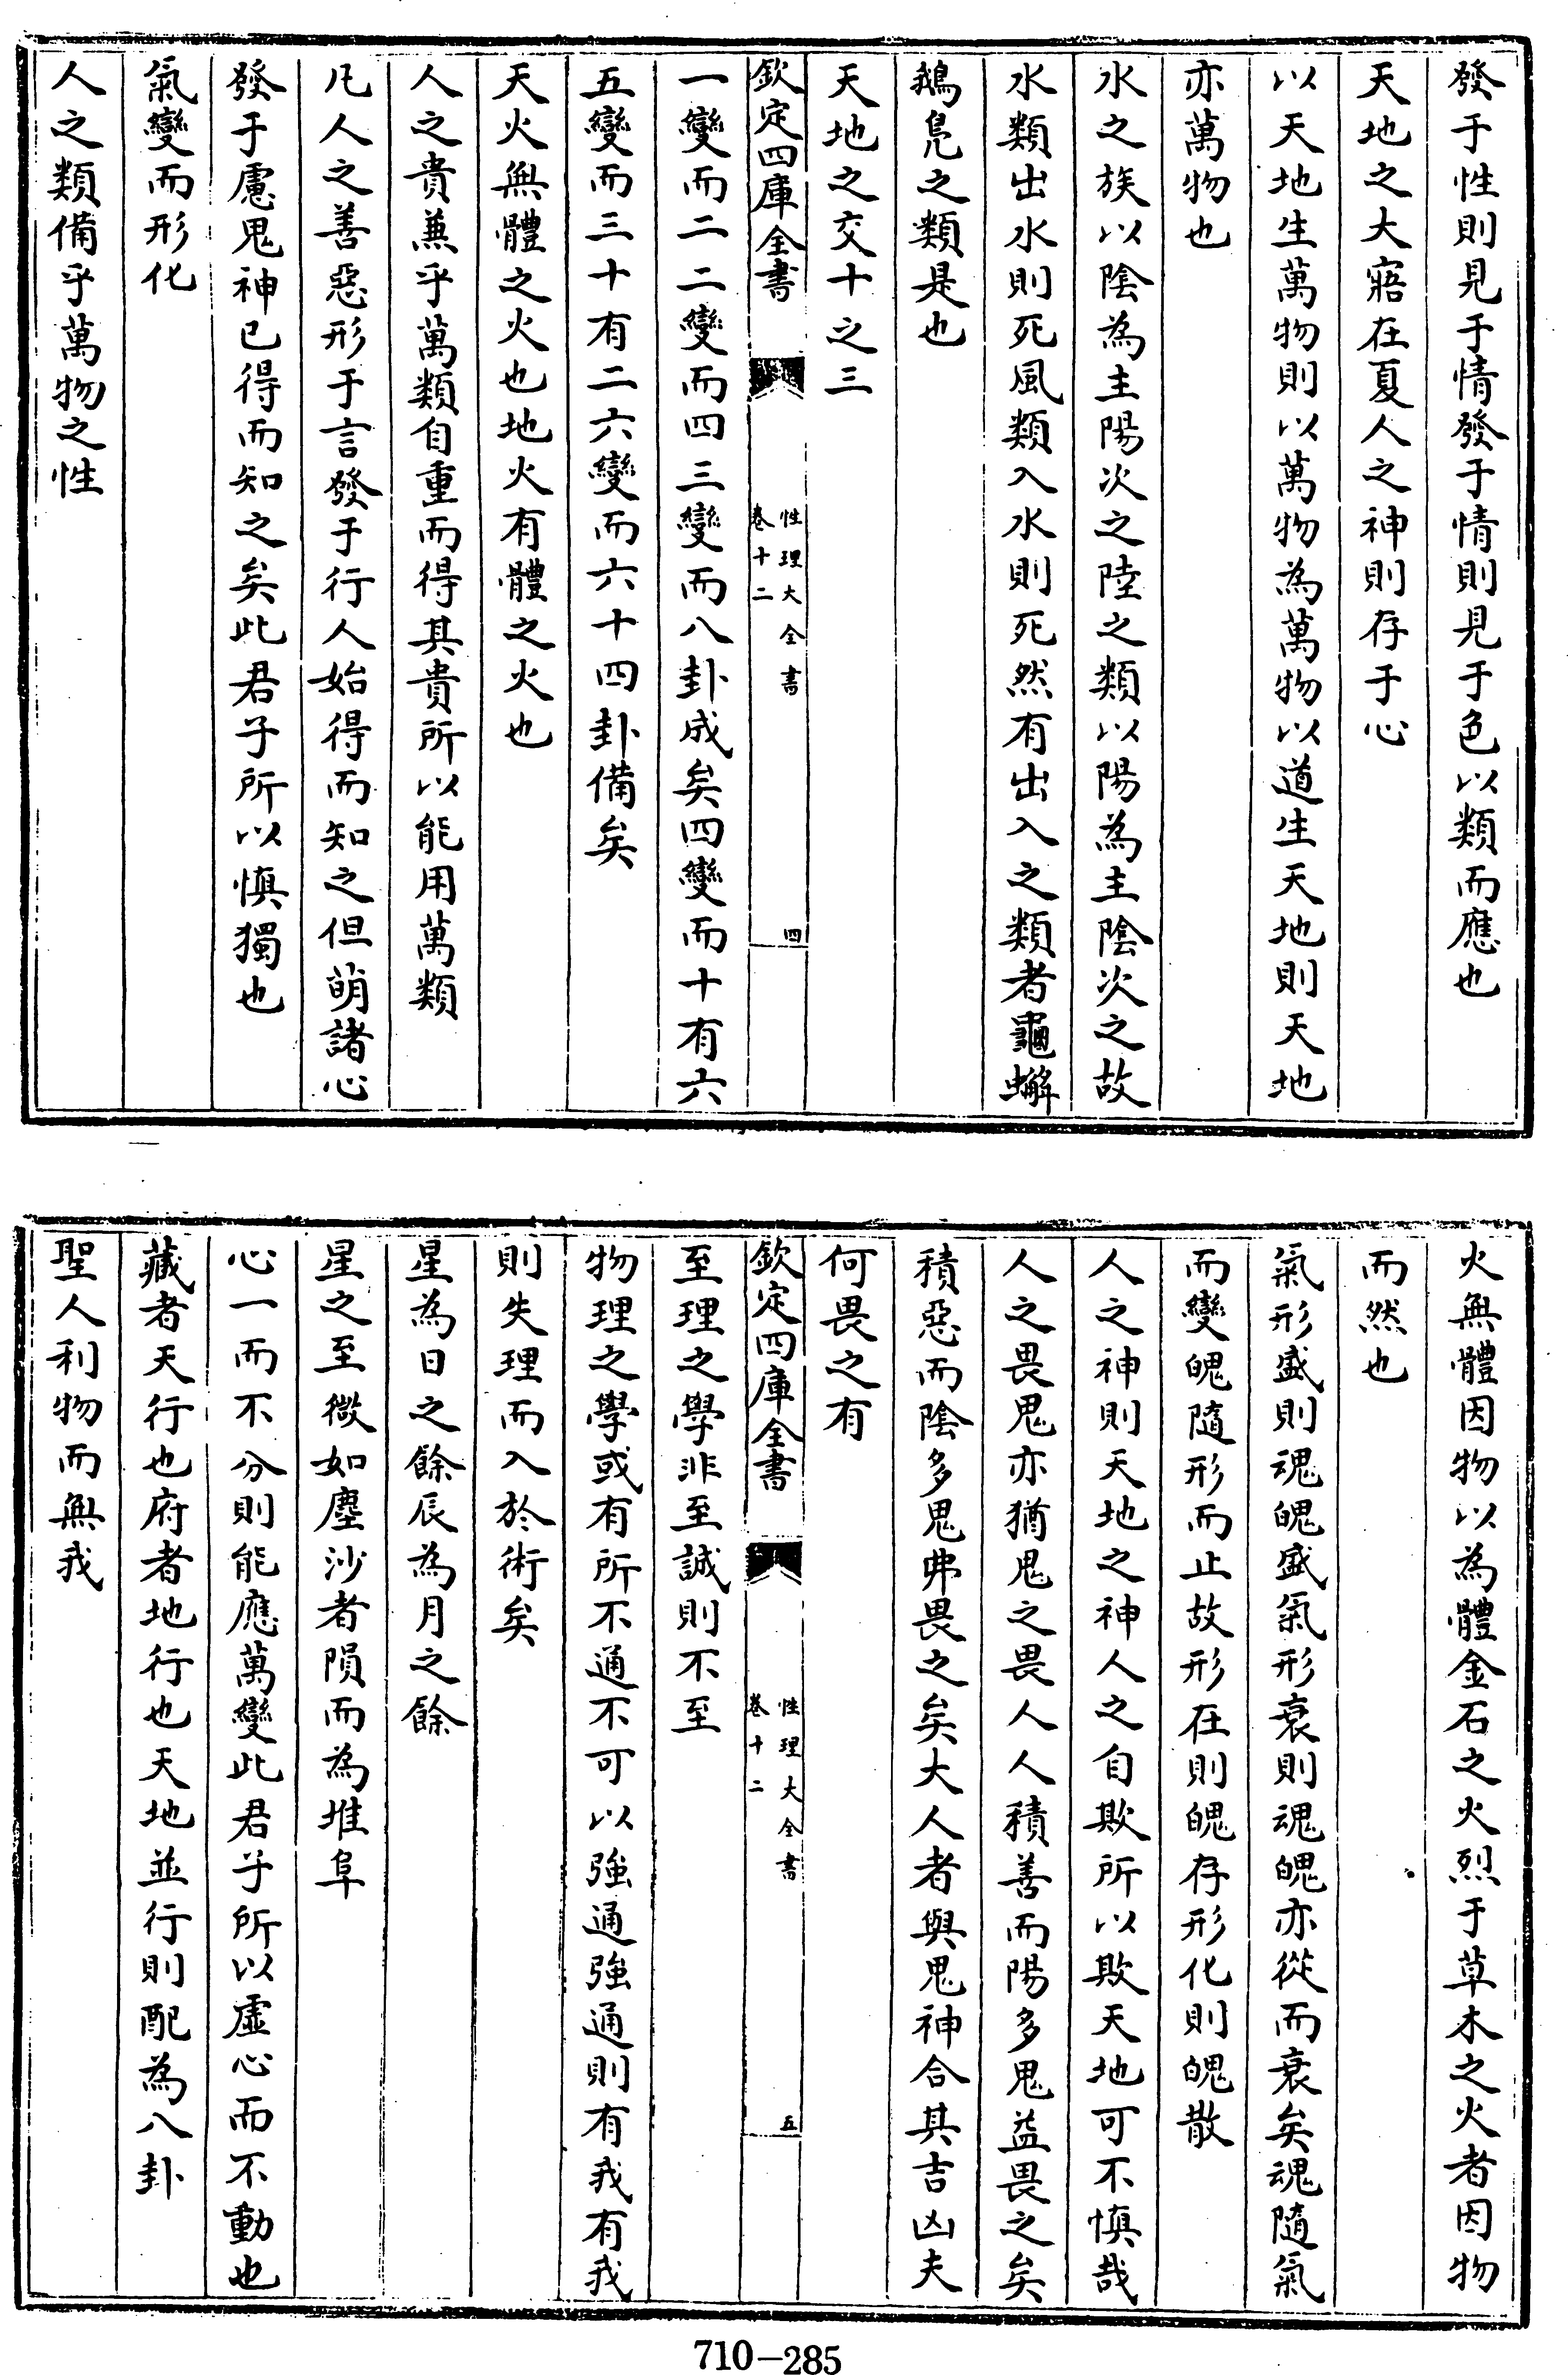 發于性則見于情發于情則見于色以類而應也
天地之大寤在夏人之神則存于心
以天地生萬物則以萬物為萬物以道生天地則天地
亦萬物也
水之族以陰為主陽次之陸之類以陽為主陰次之故
水類出水則死風類入水則死然有出入之類者龜蠏
鵝鳬之類是也
天地之交十之三
欽定四庫全書
性理大全書
卷十二
四
一變而二二變而四三變而八卦成矣四變而十有六
五變而三十有二六變而六十四卦備矣
天火無體之火也地火有體之火也
人之貴兼乎萬類自重而得其貴所以能用萬類
凡人之善惡形于言發于行人始得而知之但萌諸心
發于慮鬼神已得而知之矣此君子所以慎獨也
氣變而形化
人之類備乎萬物之性
火無體因物以為體金石之火烈于草木之火者因物
而然也
氣形盛則魂魄盛氣形衰則魂魄亦從而衰矣魂隨氣
而變魄隨形而止故形在則魄存形化則魄散
人之神則天地之神人之自欺所以欺天地可不慎哉
人之畏鬼亦猶鬼之畏人人積善而陽多鬼益畏之矣
積惡而陰多鬼弗畏之矣大人者與鬼神合其吉凶夫
何畏之有
欽定四庫全書
性理大全書
卷十二
五
至理之學非至誠則不至
物理之學或有所不通不可以強通強通則有我有我
則失理而入於術矣
星為日之餘辰為月之餘
星之至微如塵沙者隕而為堆阜
心一而不分則能應萬變此君子所以虛心而不動也
藏者天行也府者地行也天地並行則配為八卦
聖人利物而無我
710-285